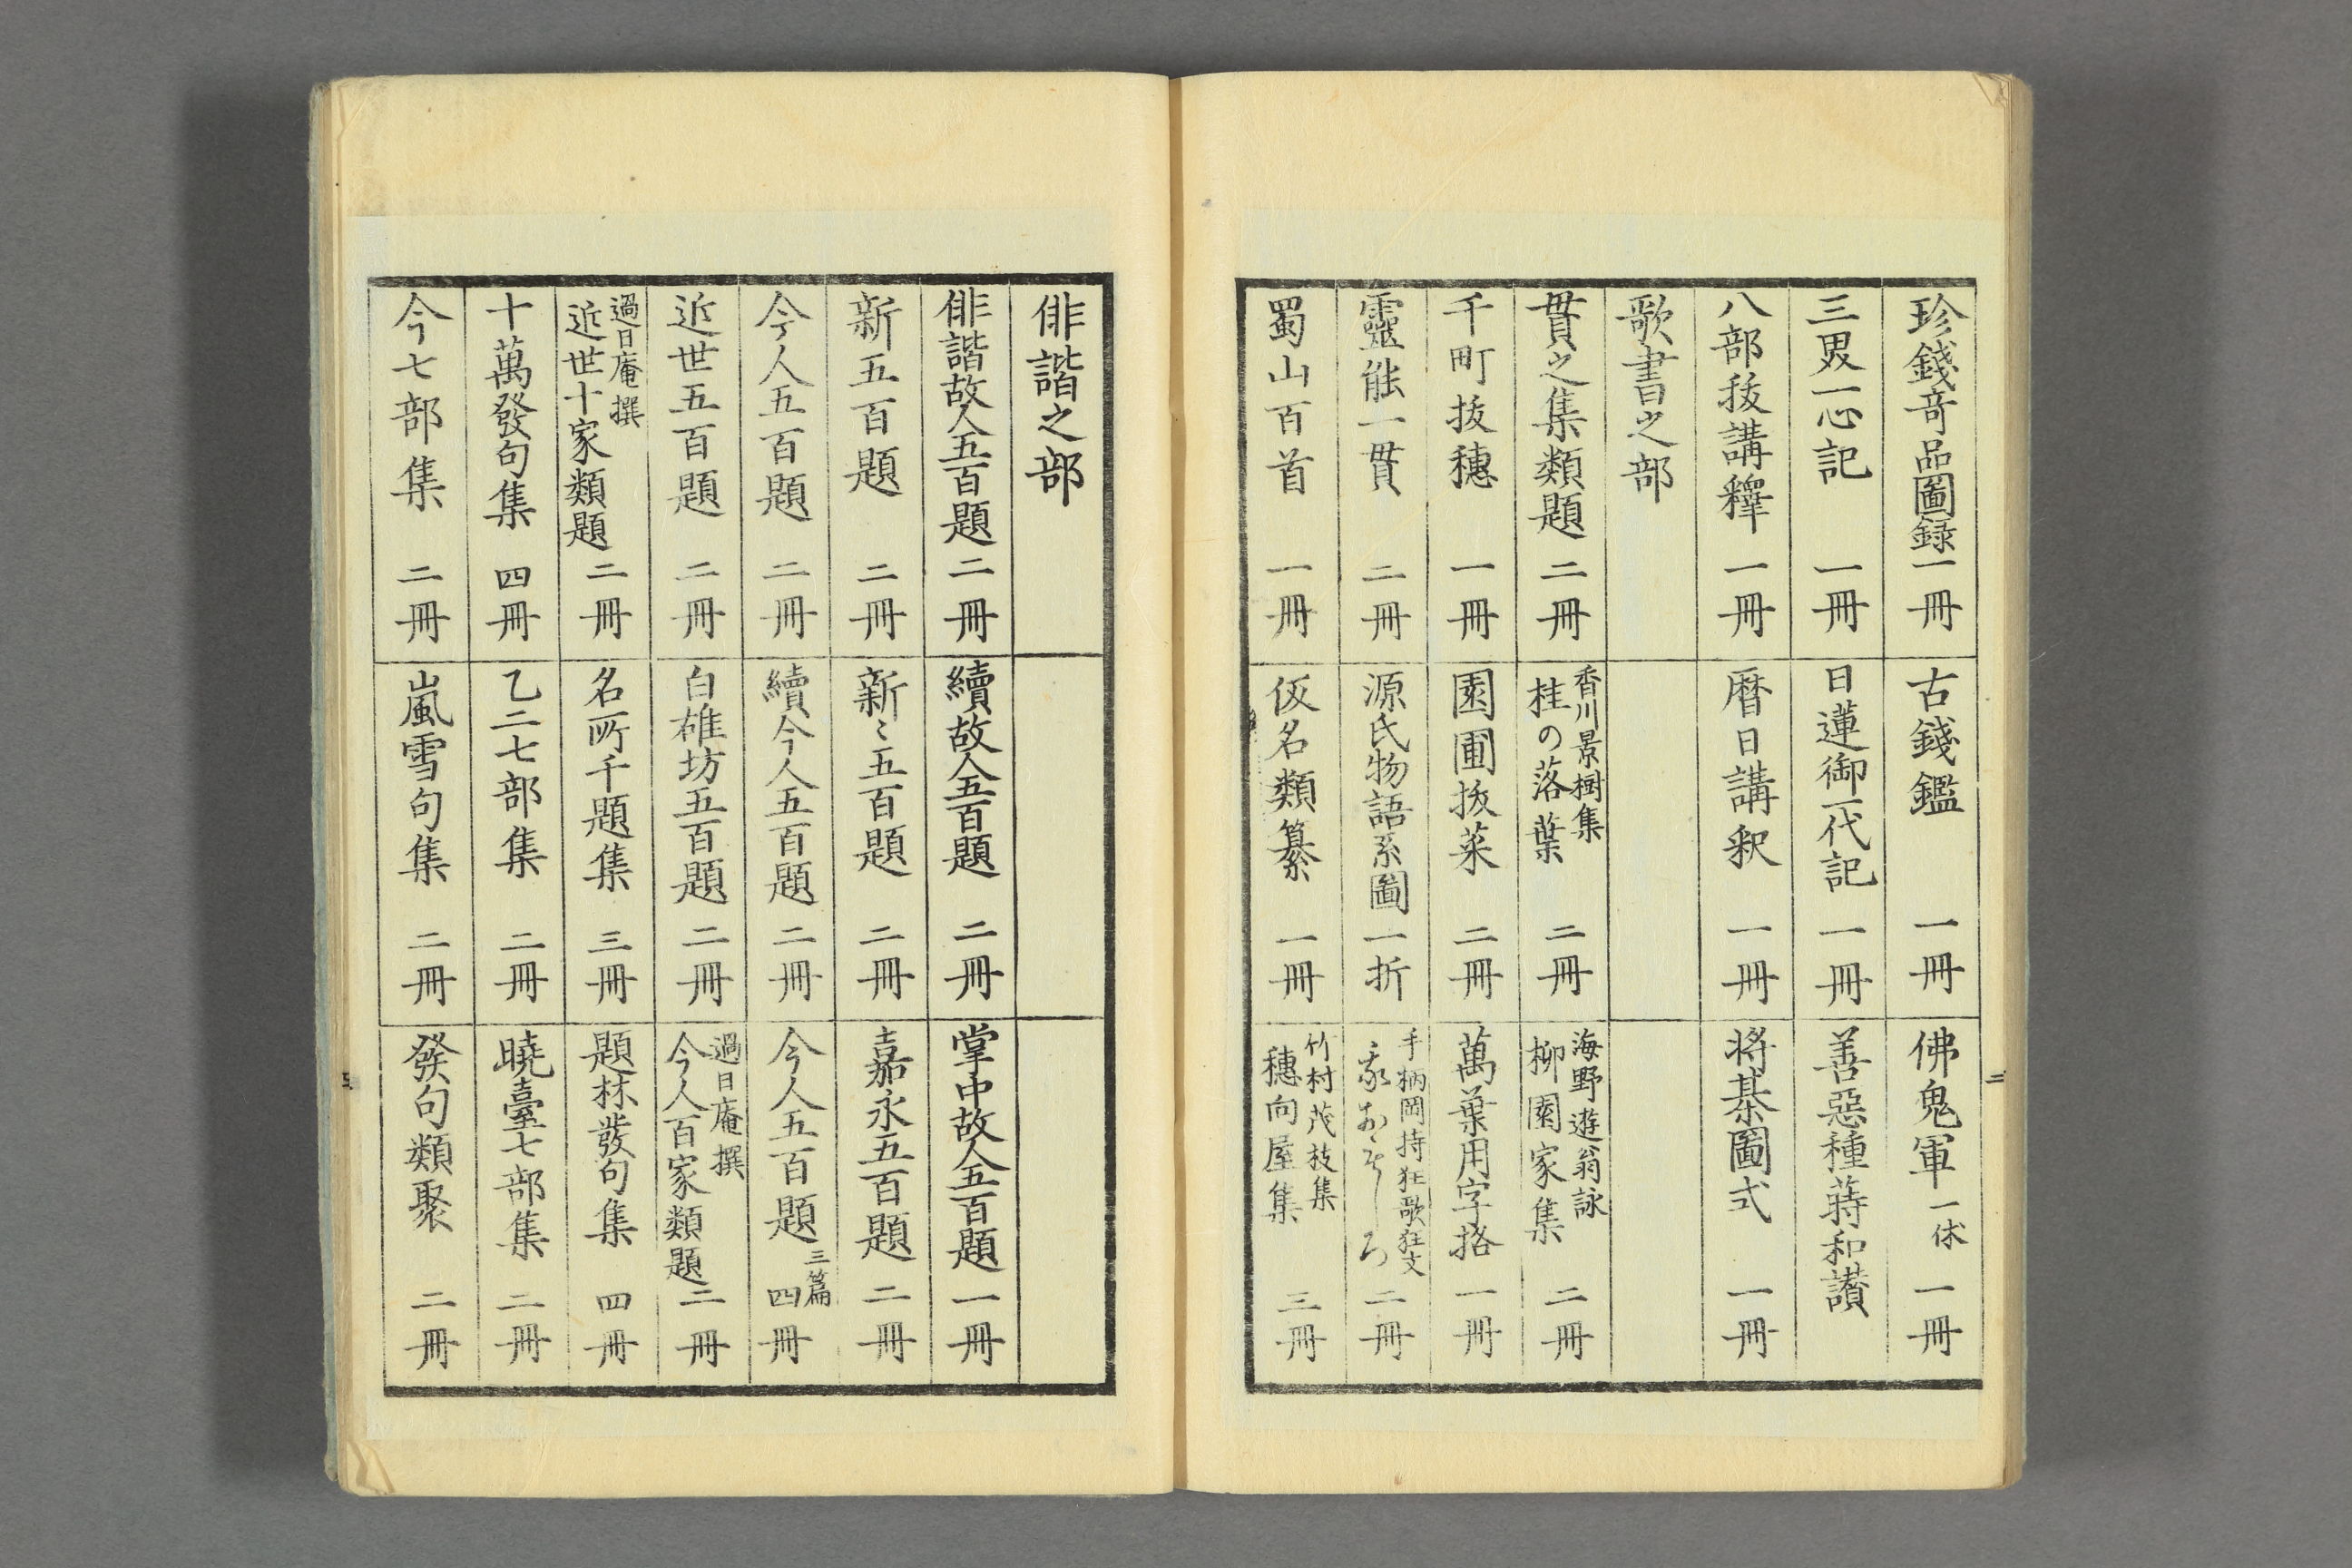 珍錢竒品圖録 一冊
古錢鑑 一冊
佛鬼軍 一休 一冊
三界一心記 一冊
日蓮御一代記 一冊
善惡種蒔和讃
八部祓講釋 一冊
暦日講釈 一冊
将棊圖式 一冊
歌書之部
貫之集類題 二冊
香川景樹集
桂の落葉 二冊
海野遊翁詠
柳園家集 二冊
千町抜穗 一冊
園圃抜菜 二冊
萬葉用字格 一冊
靈能一貫 二冊
源氏物語系圖 一折
手柄岡持狂歌狂文
二冊
蜀山百首 一冊
仮名類纂 一冊
竹村茂枝集
穗向屋集 三冊
二
俳諧之部
俳諧故人五百題 二冊
續故人五百題 二冊
掌中故人五百題 一冊
新五百題 二冊
新〻五百題 二冊
嘉永五百題 二冊
今人五百題 二冊
續今人五百題 二冊
今人五百題 三篇 四冊
近世五百題 二冊
白雄坊五百題 二冊
過日庵撰
今人百家類題 二冊
過日庵撰
近世十家類題 二冊
名所千題集 三冊
題林發句集 四冊
十萬發句集 四冊
乙二七部集 二冊
曉臺七部集 二冊
今七部集 二冊
嵐雪句集 二冊
發句類聚 二冊